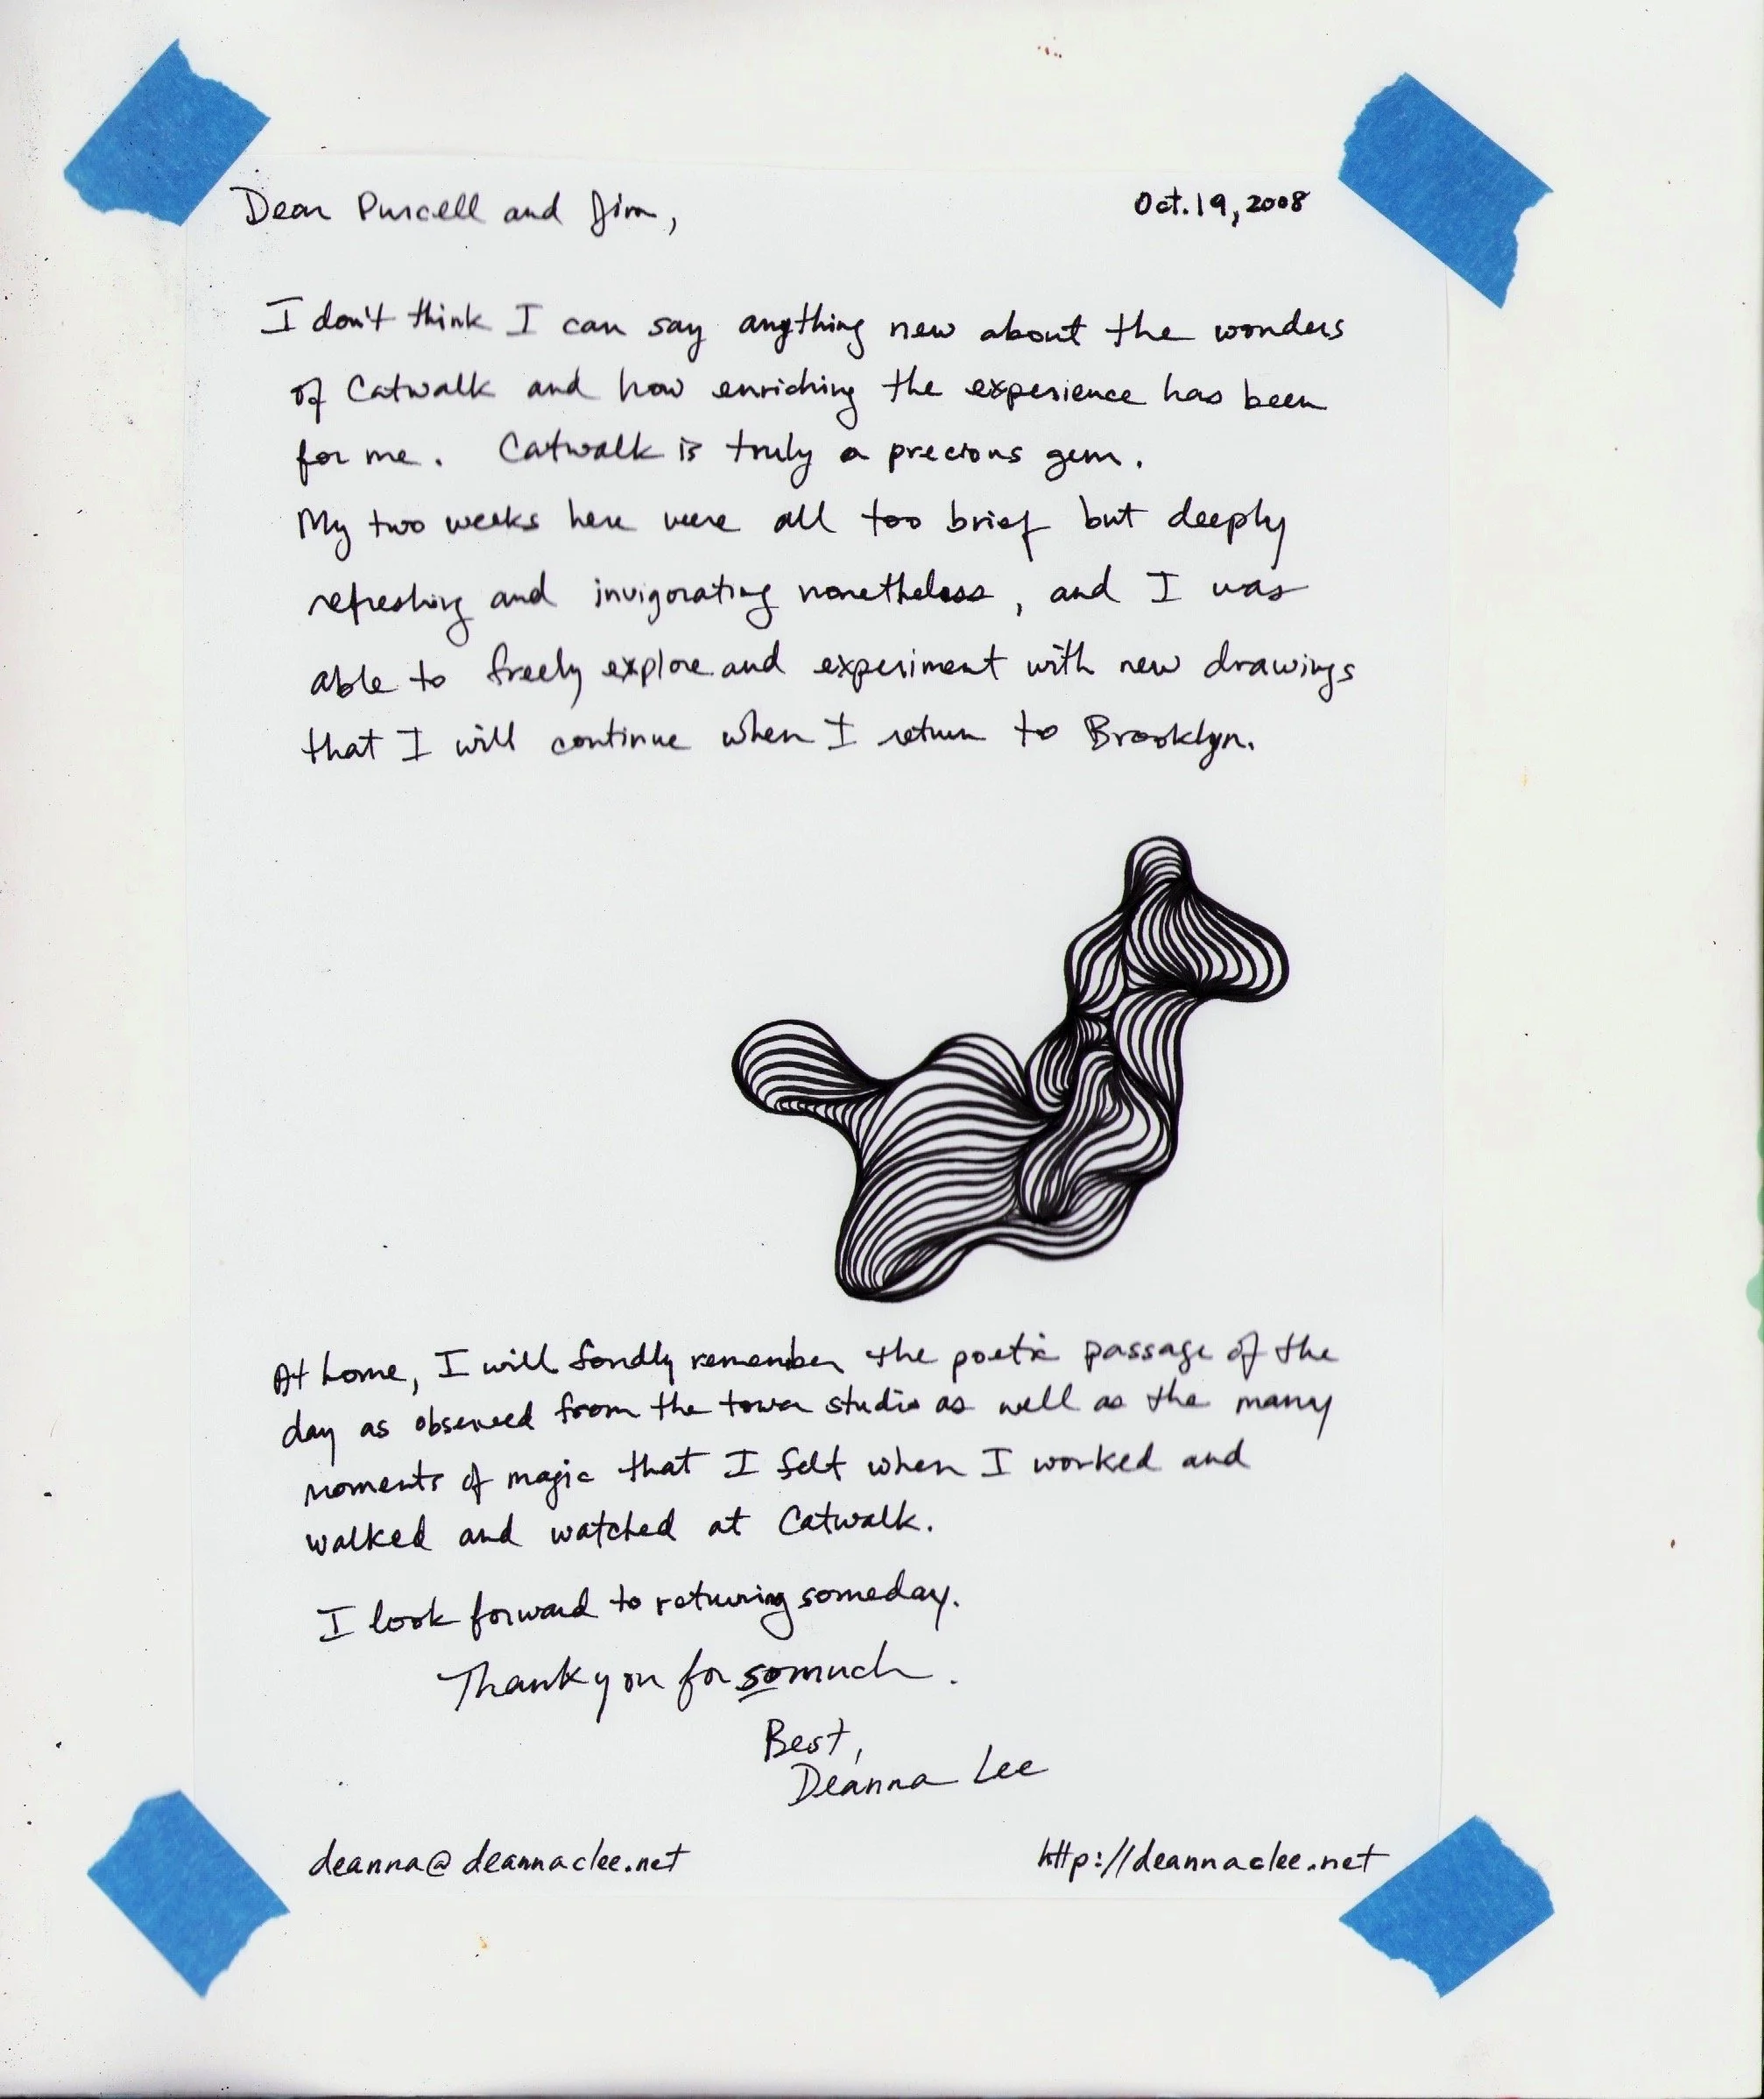 Dear Purcell and Jim,
Oct. 19, 2008
I don't think I can say anything new about the wonders
of Catwalk and how enriching the experience has been
for me. Catwalk is truly a precious gem.
My two weeks here were all too brief but deeply
refreshing and invigorating nonetheless, and I was
able to freely explore and experiment with new drawings
that I will continue when I return to Brooklyn.
At home, I will fondly remember the poetic passage of the
day as observed from the tower studio as well as the many
moments of magic that I felt when I worked and
walked and watched at Catwalk.
I look forward to returning someday.
Thank you for so much.
Best,
Deanna Lee
deanna@deannaclee.net
http://deannaclee.net